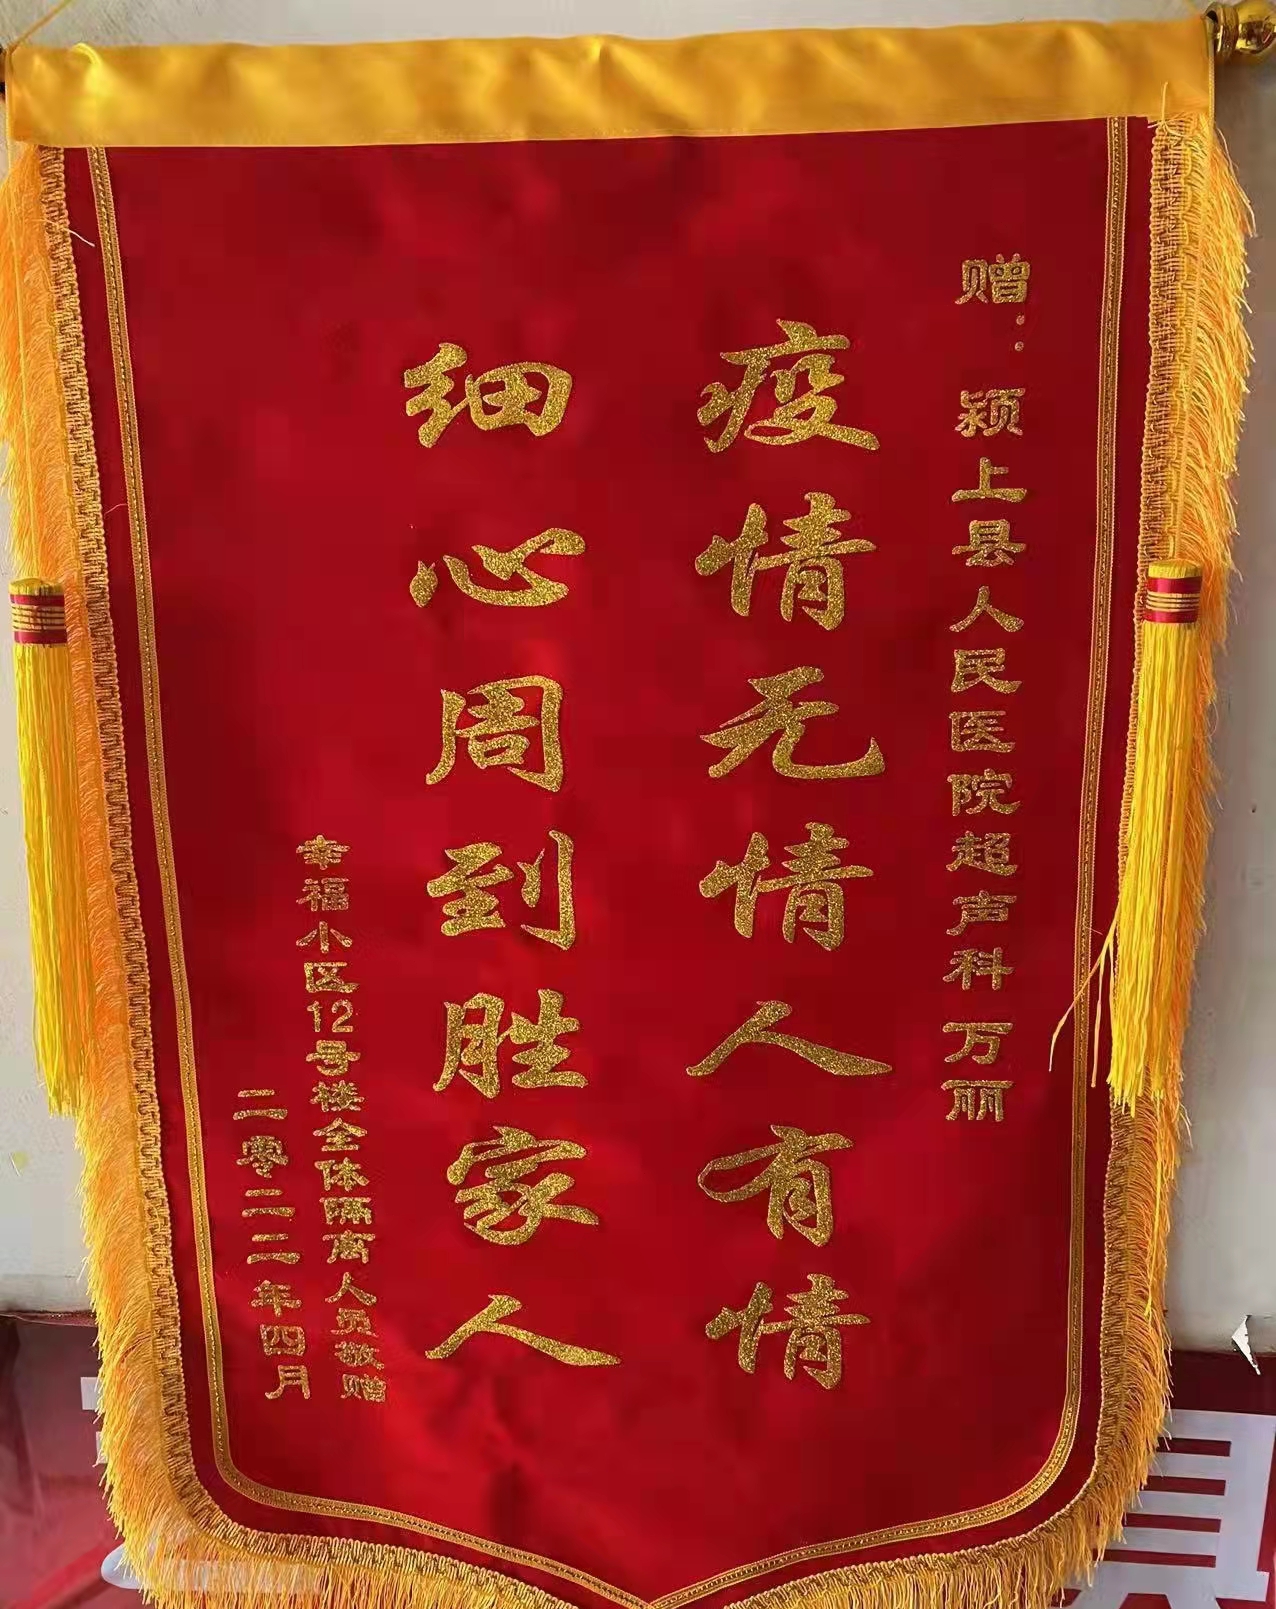 赠：颍上县人民医院超声科 万丽
疫情无情人有情
细心周到胜家人
幸福小区12号楼全体隔离人员敬赠
二零二二年四月